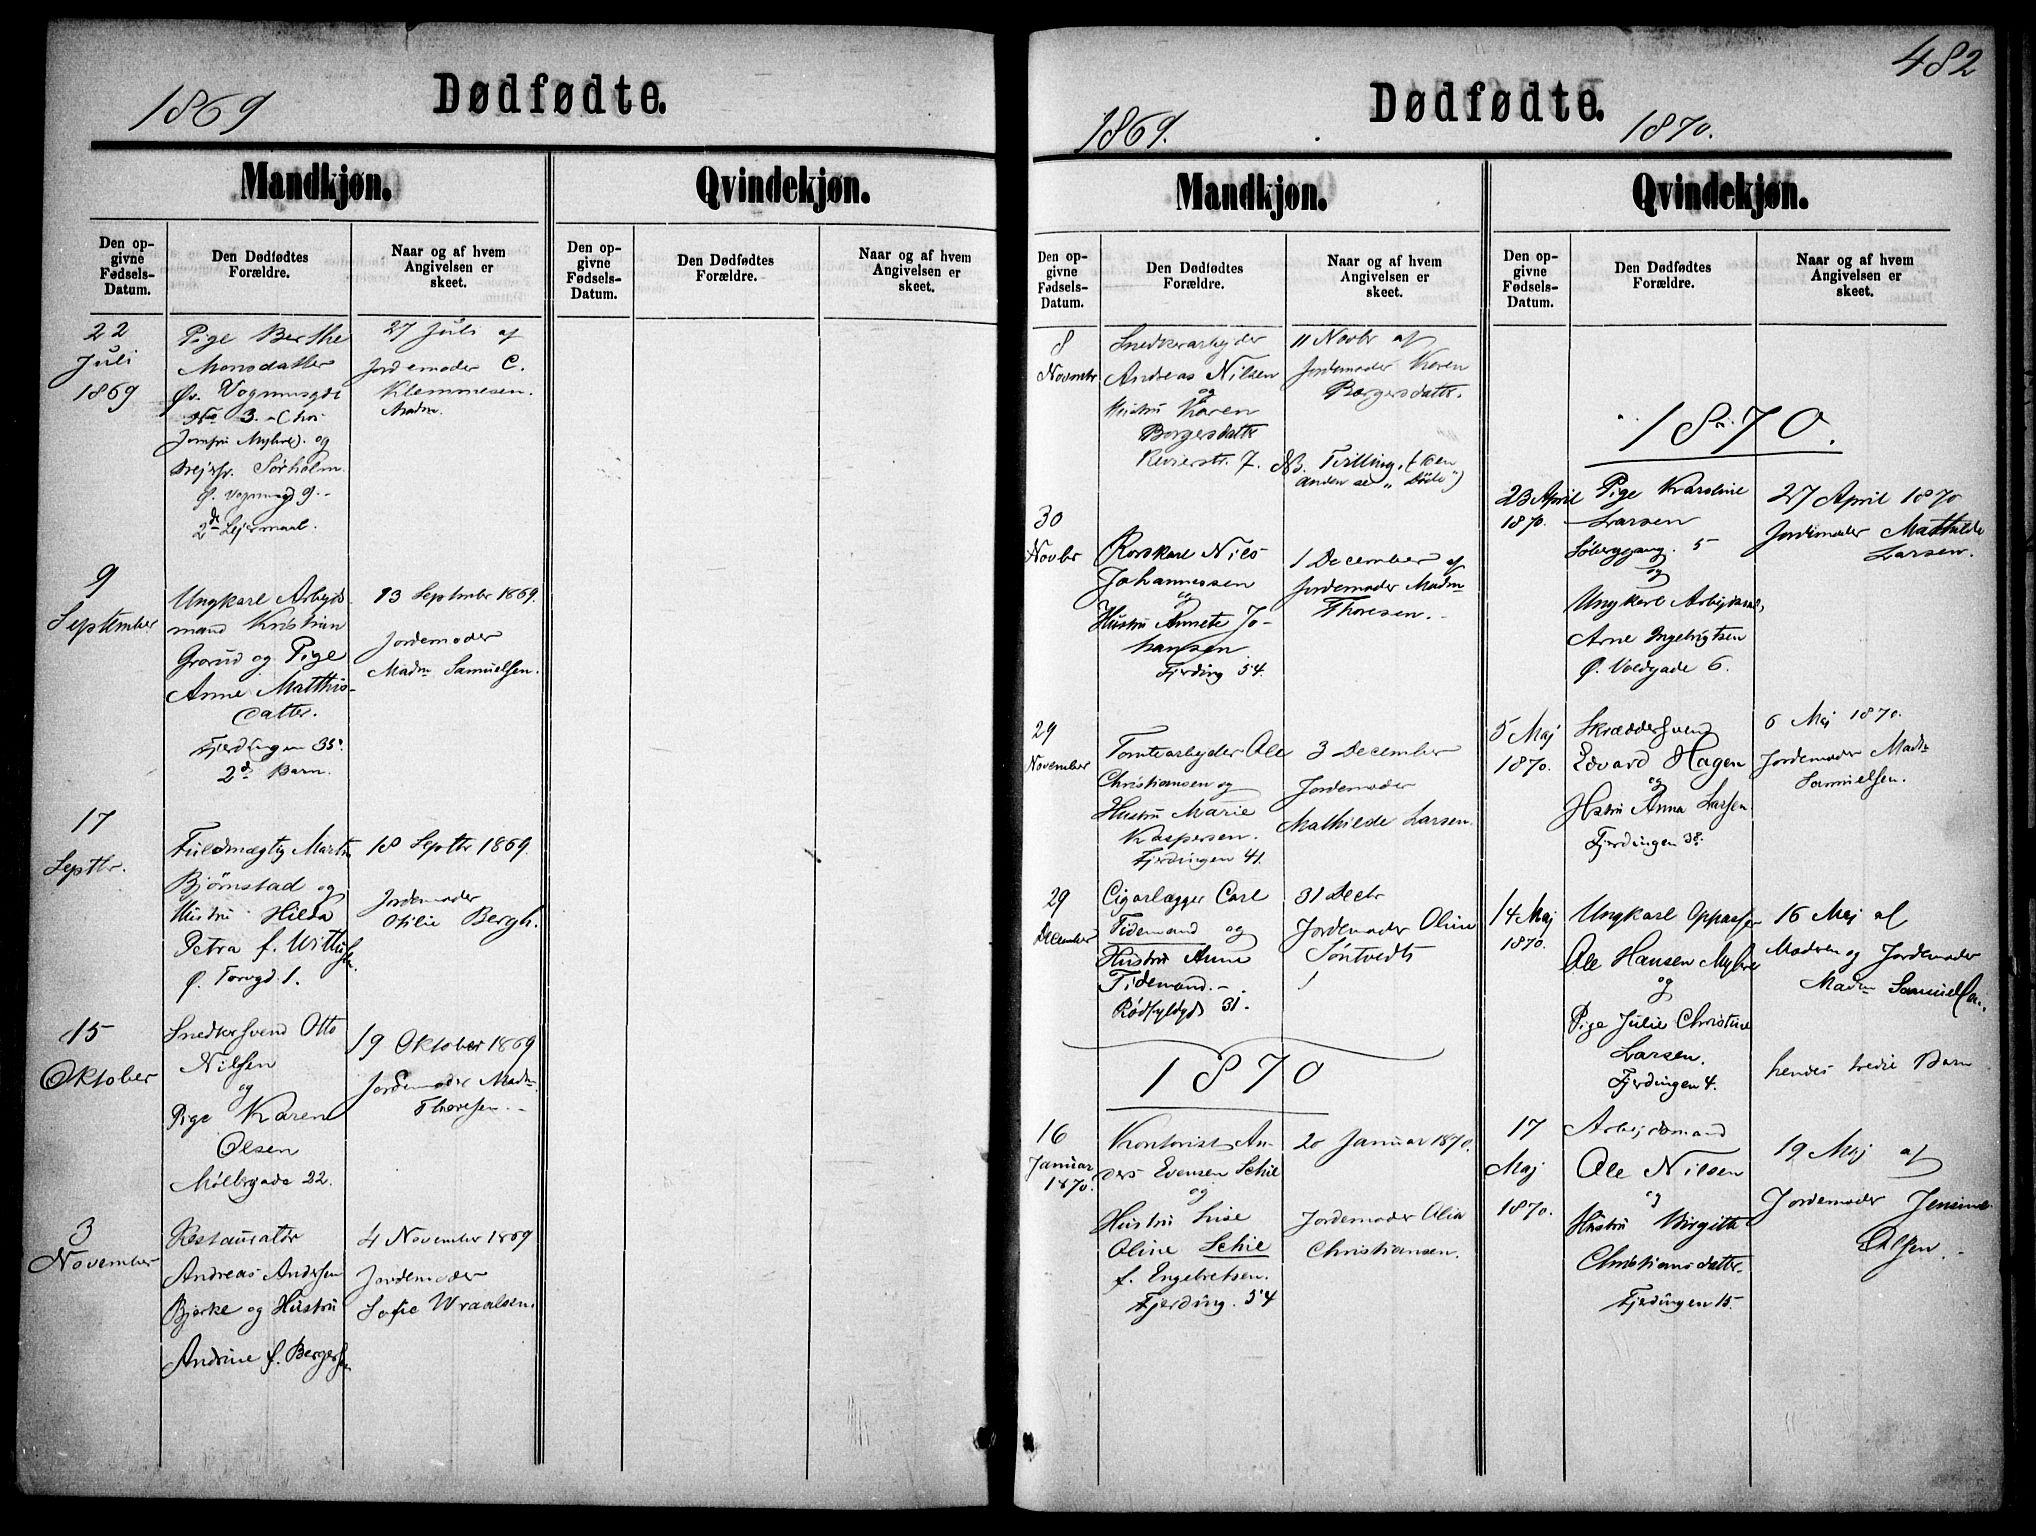 1869
Dødfødte.
Mandkjøn.
Qvindekjøn.
Den op-
givne
Fødsels-
Datum.
Den Dødfødtes
Forældre.
Naar og af hvem
Angivelsen er
skeet.
Den op-
givne
Fødsels-
Datum.
Den Dødfødtes
Forældre.
Naar og af hvem
Angivelsen er
skeet.
22
Juli
1869
Pige Berthe
Monsdatter
Øv. Vognmsgde
No 3. (hos
Jomfru Myhre) og
Drejersv. Sørholm
Ø. Vognmgd 9.
2de Lejermaal.
27 Juli af
Jordemoder C.
Klemmesen.
Madm.
9
September
Ungkarl Arbejds-
mand Kristian
Grorud og Pige
Anne Matthis-
datter.
Fjerdingen 35.
2det Barn.
13 September 1869.
Jordemoder
Madm Samuelsen.
17
Septbr.
Fuldmægtig Martin
Bjørnstad og
Hustru Hilda
Petra f. Withusen
Ø. Torvgd. 1.
18 Septbr 1869.
Jordemoder
Otilie Bergh.
15
Oktober
Snedkersvend Otto
Nilsen
og
Pige Karen
Olsen
Møllergade 22.
19 Oktober 1869
Jordemoder Madm
Thoresen.
3
November
Restauratør
Andreas Andersen
Bjerke og Hustru
Andrine f. Bergersen
4 November 1869
Jordemoder
Sofie Wraalsen.
482
Dødfødte.
1869.
1870.
Mandkjøn.
Qvindekjøn.
Den op-
givne
Fødsels-
Datum.
Den Dødfødtes
Forældre.
Naar og af hvem
Angivelsen er
skeet.
Den op-
givne
Fødsels-
Datum.
Den Dødfødtes
Forældre.
Naar og af hvem
Angivelsen er
skeet.
8
Novembr
Snedkerarbejder
Andreas Nilsen
og
Hustru Karen
Borgersdatter
Revierstr. 7.
11 Novbr af
Jordemoder Karen
Borgersdatter.
NB. Tvilling, (den
anden se "Døde")
30
Novbr
Rorskarl Nils
Johannessen
og
Hustru Annete Jo-
hansen
Fjerding 54.
1 December af
Jordemoder Madm
Thoresen.
29
November
Tomtearbejder Ole
Christiansen og
Hustru Marie
Kaspersen.
Fjerdingen 41.
3 December
Jordemoder
Mathilde Larsen.
29
December
Cigarlægger Carl
Tidemand og
Hustru Anne
Tidemand.
Rødfyldgd 31.
31 Decbr
Jordemoder Oline
Søntvedts
1870
16
Januar
1870.
Kontorist An-
ders Evensen Schie
og
Hustru Lise
Oline Schie
f. Engebretsen.
Fjerding. 54
20 Januar 1870.
Jordemoder Olia
Christiansen.
1870.
23 April
1870.
Pige Karoline
Larsen
Søberggang. 5
og
Ungkarl Arbejdsmd,
Arne Ingebrigtsen
Ø. Voldgade 6.
27 April 1870
Jordemoder Mathilde
Larsen.
5 Maj
1870.
Skræddersvend
Edvard Hagen
og
Hstru Anna Larsen
Fjerdingen 38.
6 Maj 1870.
Jordemoder Madm
Samuelsen.
14 Maj
1870.
Ungkarl Oppasser
Ole Hansen Myhre
og
Pige Julie Christine
Larsen.
Fjerdingen 4.
16 Maj af
Moderen og Jordemoder
Madm Samuelsen.
hendes tredie Barn
17
Maj
1870.
Arbejdsmand
Ole Nilsen
og
Hustru Birgitte
Christiansdatter.
Fjerdingen 15.
19 Maj af
Jordemoder Jensine
Olsen.